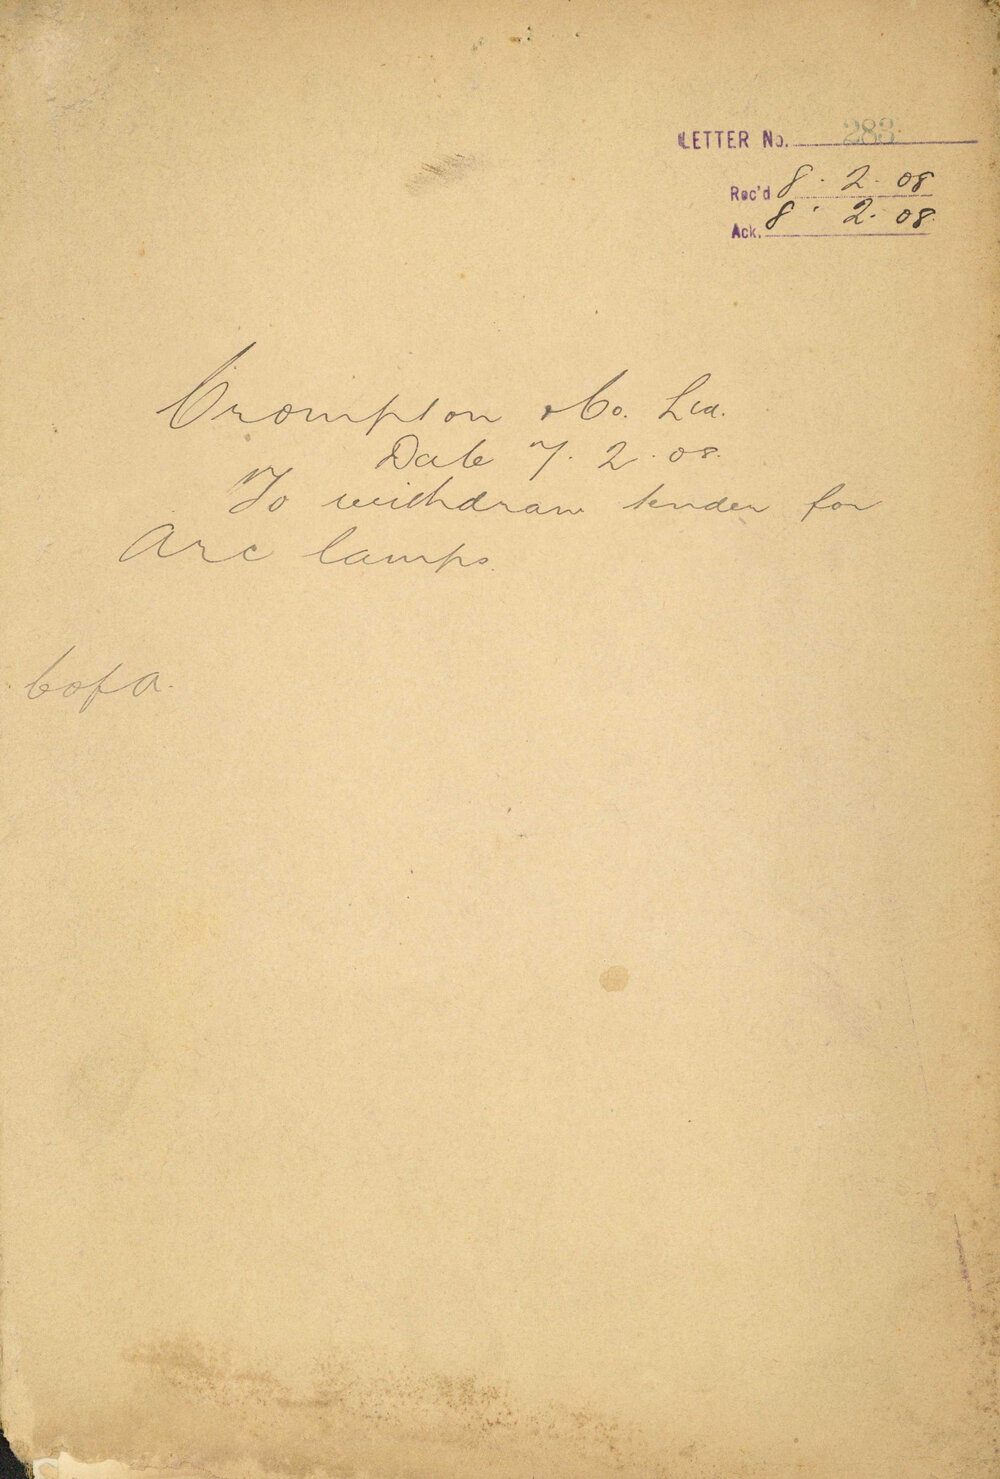 LETTER No. 283
Rec'd 8 . 2 . 08
Ack. 8 . 2 . 08.
Crompton & Co. Ltd.
Date 7. 2. 08.
To withdraw tender for
Arc lamps.
C of A.